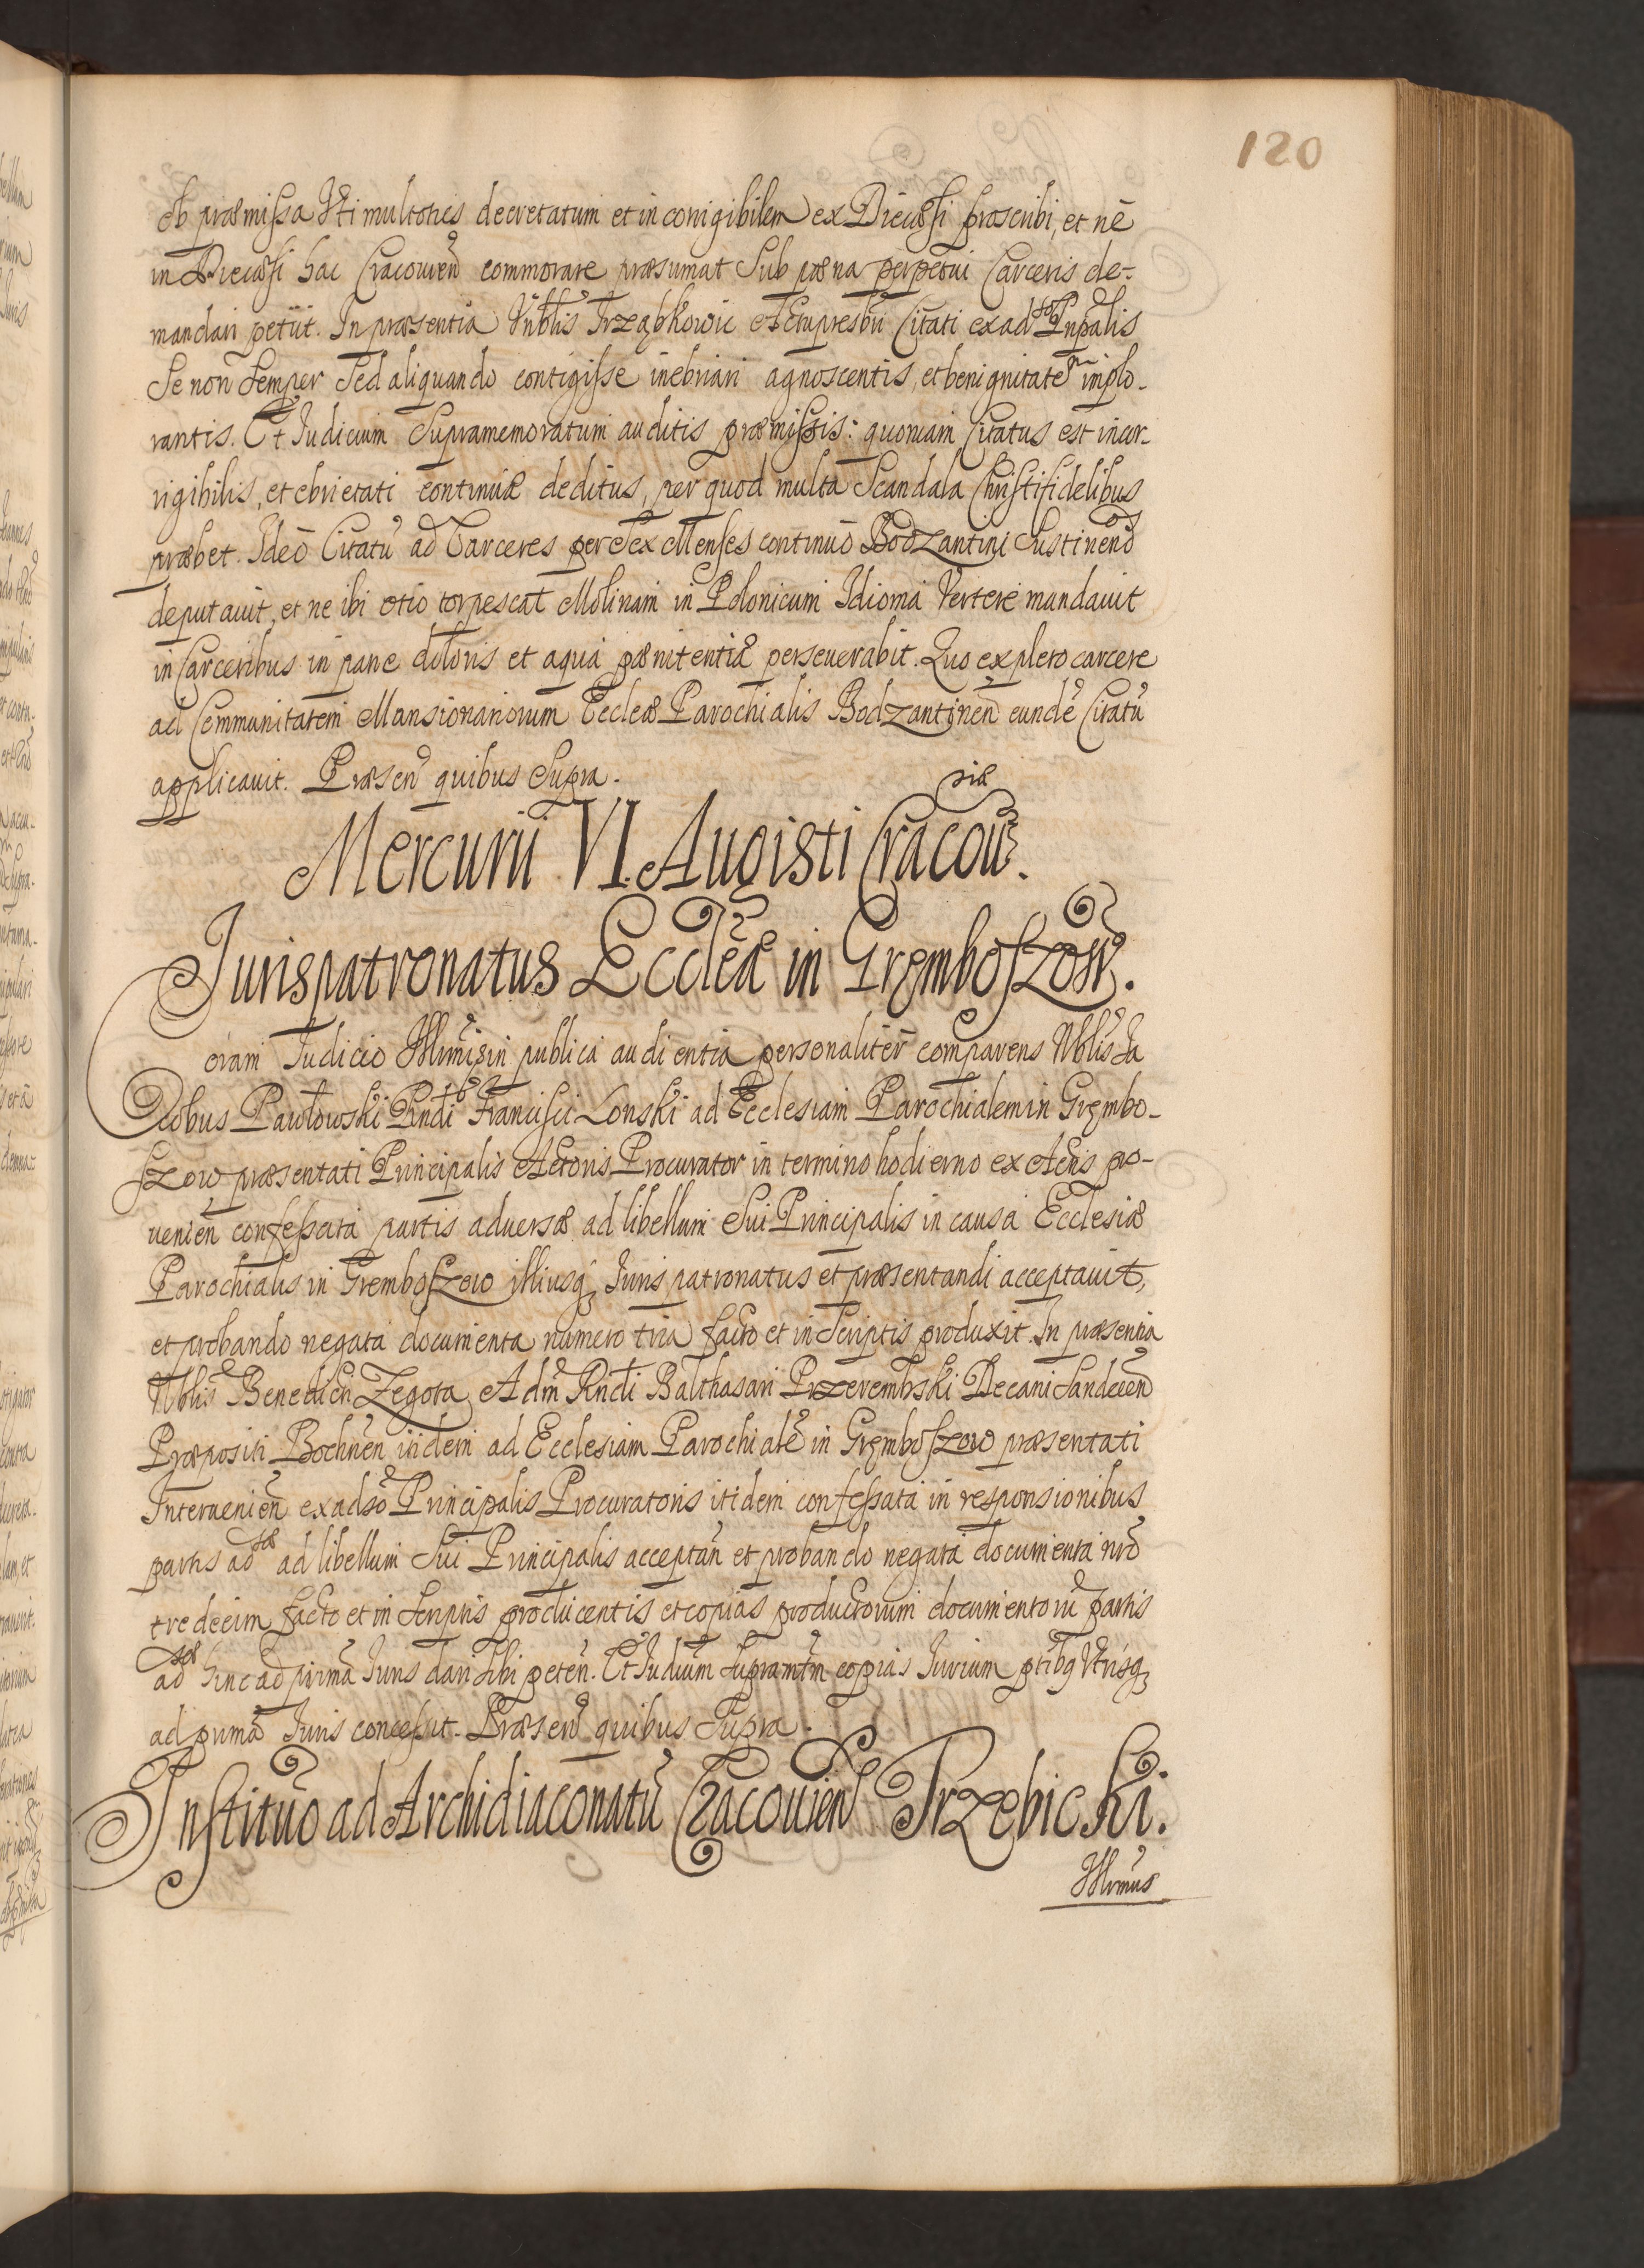 120
Ob præmissa Vti multoties decretatum et incorrigibilem ex Diecæsi proscribi, et nē
in Diecæsi hac Cracouien̄ commorare præsumat Sub pœna perpetui Carceris de-
mandari petiit. In præsentia Vnblis Trząbkowic et Actupresbri Citati ex adso Pnpalis
Se non Semper Sed aliquando contigisse inebriari agnoscentis, et benignitatem implo-
rantis. Et Iudicium Supramemoratum auditis præmissis: quoniam Citatus est incor-
rigibilis, et ebrietati continuæ deditus, per quod multa Scandala Christifidelibus
præbet. Ideo Citatū ad Carceres per Sex Menses continuo Bodzantini Sustinendos
deputauit, et ne ibi otio torpescat Molinam in Polonicum Idioma Vertere mandauit
in Carceribus in pane doloris et aqua pœnitentiæ perseuerabit. Quo expleto carcere
ad Communitatem Mansionariorum Eccleæ Parochialis Bodzantinen̄ eundē Citatū
applicauit. Præsen̄ quibus Supra.
Mercurii VI. Augisti Cracouiæ.
Iurispatronatus Eccleæ in Gremboszow.
oram Iudicio Illrmi sin publica audientia personaliter comparens Nblis Ja
Cobus Pawłowski Rndi Francisci Lonski ad Ecclesiam Parochialem in Grembo-
szow præsentati Principalis Actoris Procurator in termino hodierno ex Actis pro-
uenien̄ confessata partis aduersæ ad libellum Sui Principalis in causa Ecclesiæ
Parochialis in Gremboszow illiusq Iuris patronatus et præsentandi acceptauit,
et probando negata documenta numero tria facto et in Scriptis produxit. In præsentia
Nblis Benedicti Zegota Adm̄ Rndi Balthasari Przerembski Decani Sandecen̄
Præpositi Bochnen itidem ad Ecclesiam Parochialē in Gremboszow præsentati
Interuenien̄ ex adso Principalis Procuratoris itidem confessata in responsionibus
partis adsæ ad libellum Sui Principalis acceptan̄ et probando negata documenta nrō
tredecim facto et in Scriptis producentis et copias productorum documentorū partis
adsæ hinc ad primā Iuris dari Sibi peten̄. Et Iudiūm Supramtm copias Iurium ptibq Vtrisq
ad primā Iuris concessit. Præsen̄ quibus Supra.
Institutio ad Archidiaconatū Cracouien̄ Trzebicki.
Illrmus